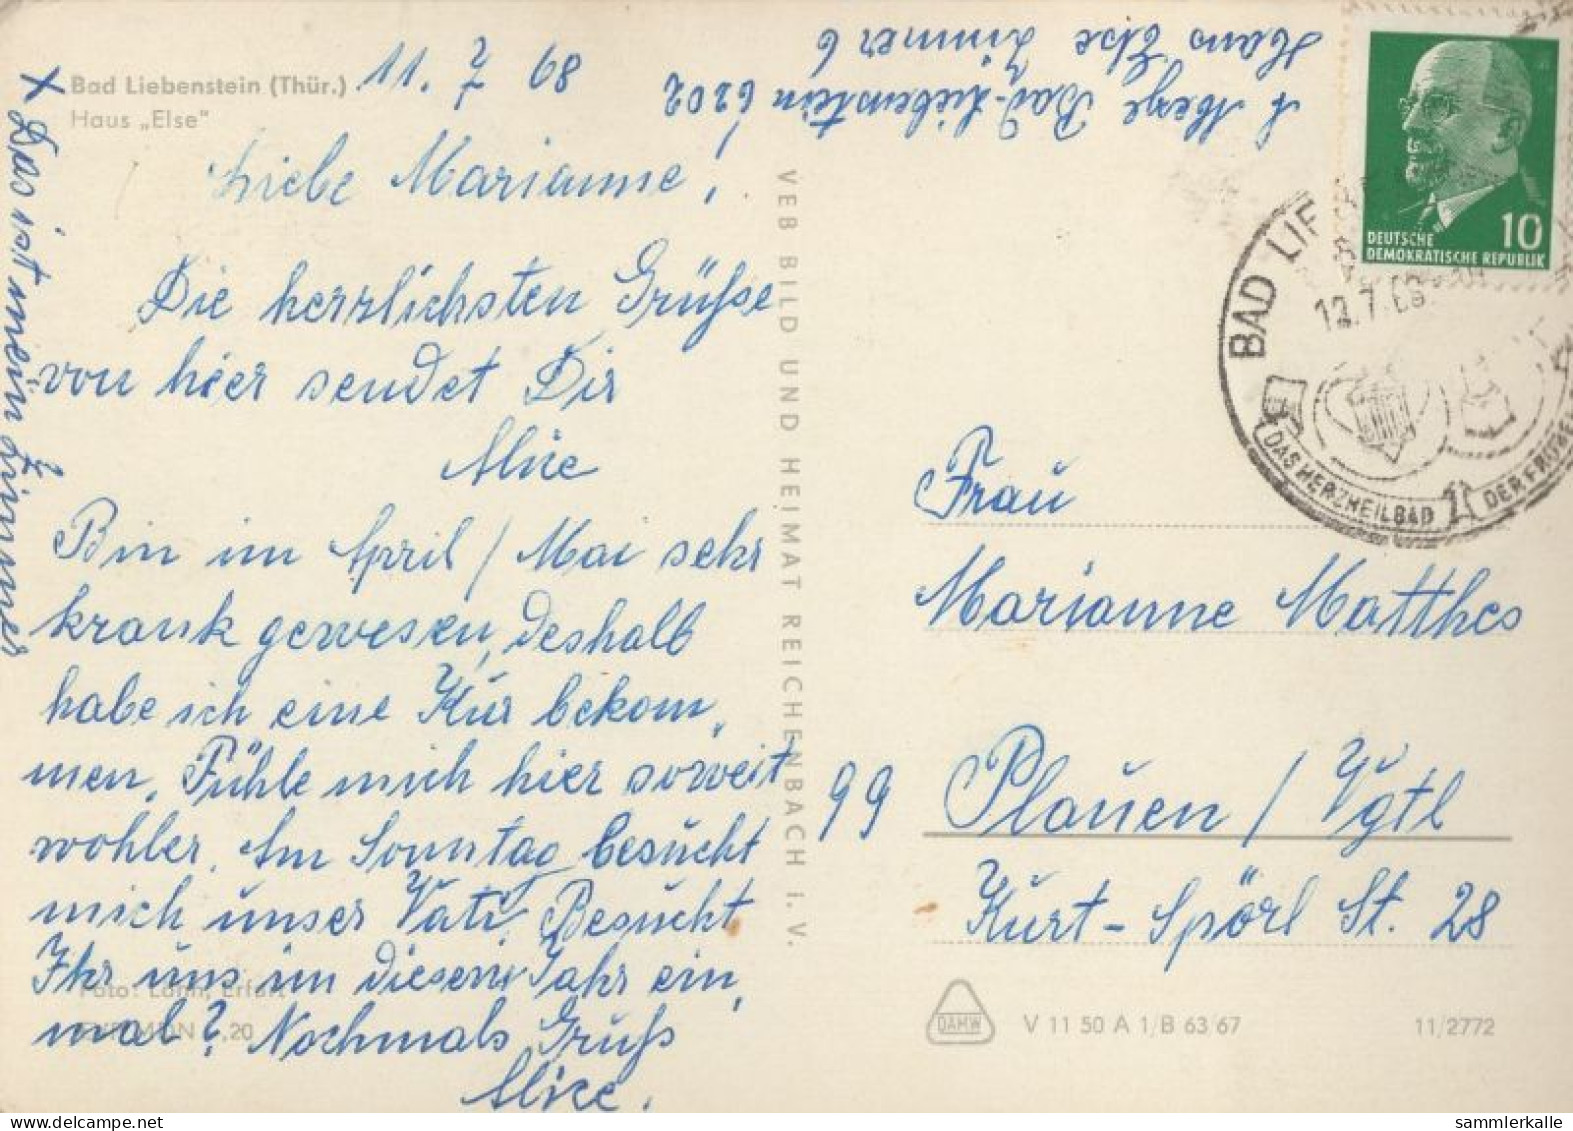 Bad Liebenstein (Thür.)
Haus „Else"
11. 7 68
Liebe Marianne,
Die herrlichsten Grüße
von hier sendet Dir
Alice
Bin im April / Mai sehr
krank gewesen, deshalb
habe ich eine Kur bekom„
men. Fühle mich hier soweit
wohler. Am Sonntag besucht
mich unser Vati. Besucht
Ihr uns im diesem Jahr ein„
mal? Nochmals Gruß
Alice.
x Das ist mein Zimmer
Foto: Lahn, Erfurt
20
VEB BILD UND HEIMAT REICHENBACH i. V.
Bad-Liebenstein 6202
Haus Else Zimmer 6
10
DEUTSCHE
DEMOKRATISCHE REPUBLIK
BAD LIE
12.7.68
DAS HERZHEILBAD
DER FRÖBEL
Frau
Marianne Matthes
99 Plauen / Vgtl
Kurt-Spörl St. 28
DAMW
V 11 50 A 1/B 63/67
11/2772
sammlerkalle